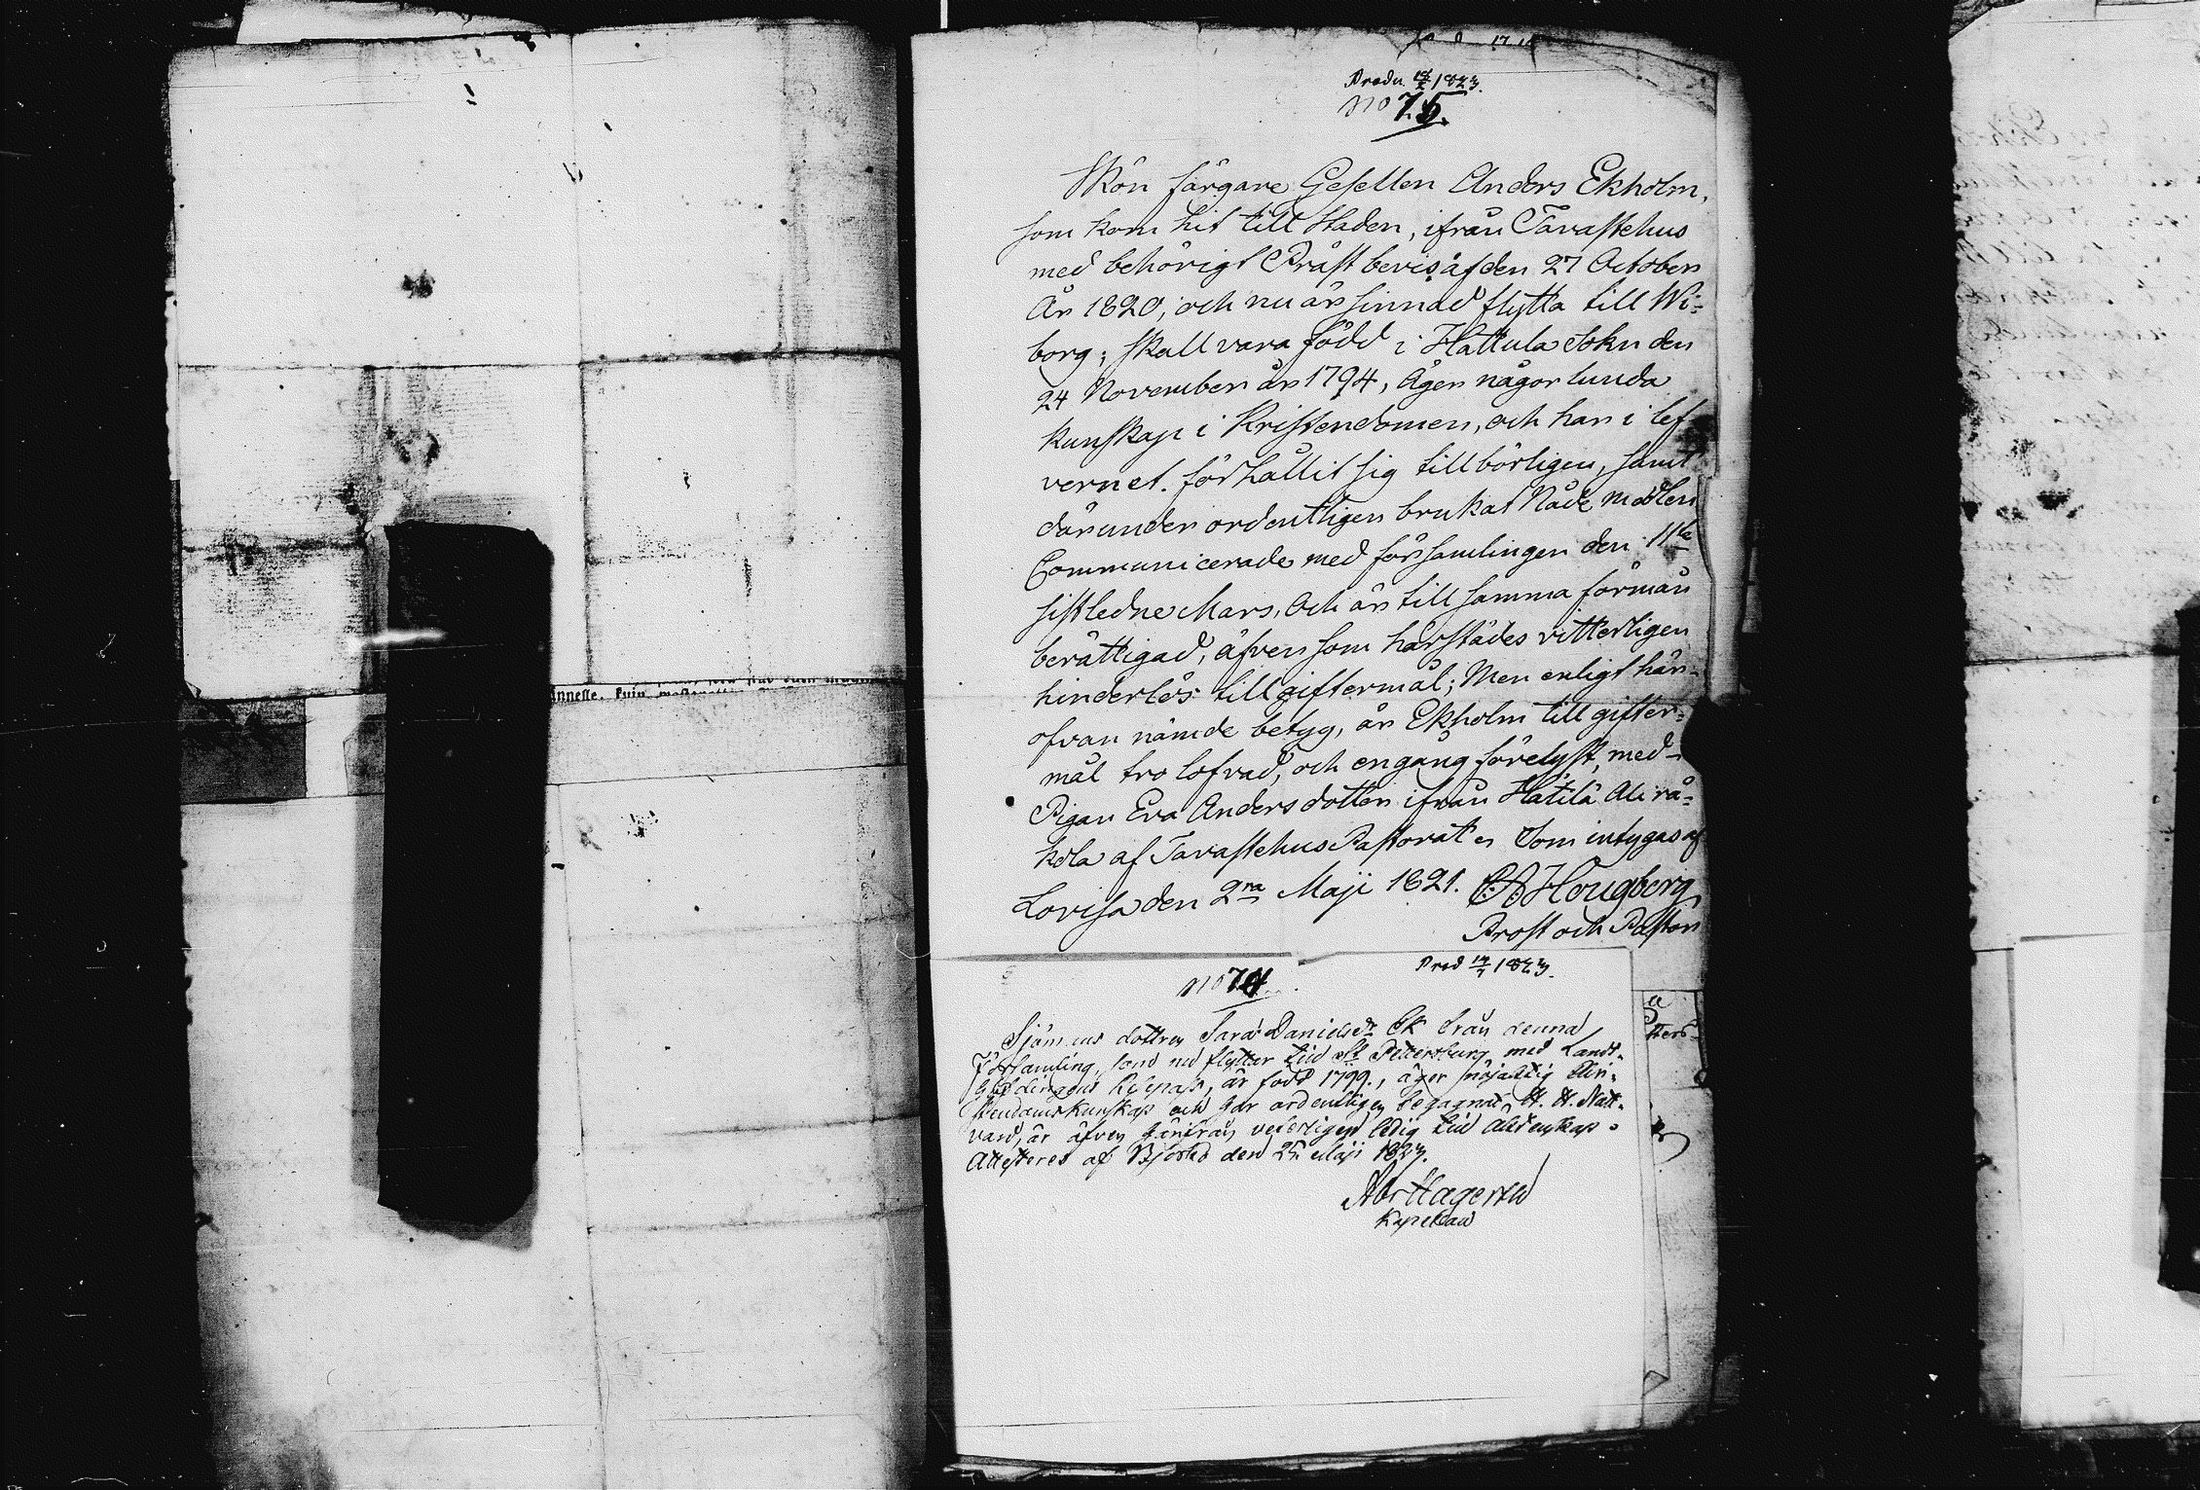 Prodn 18/2 1823.
No 75.
Skön färgare Gesellen Anders Ekholm,
som kom hit till Staden, ifrån Tavastehus
med behörigt Präst bevis af den 27 October
År 1820, och nu är sinnad flytta till Wi-
borg; skall vara född i Hattula Sokn den
24 November år 1794, Äger någorlunda
kunskap i Kristendomen, och har i lef
vernet förhållit sig tillbörligen, samt
därunder ordentligen brukat Nåde medlen
Communicerade med församlingen den 11te
sistledne Mars, Och är till samma förmån
berättigad, äfven som härstädes vitterligen
hinderlös till giftermål; Men enligt här-
ofvan nämde betyg, är Ekholm till gifter-
mål trolofvad, och engång förelyst, med
Pigan Eva Andersdotter ifrån Hätilä Alirå-
kola af Tavastehus Pastorat er Som intygas af
Lovisa den 2ra Maji 1821. Hougberg
Prost och Pastor
No 74
Prod 1823.
Sjömans dottren Sara Danielsdr Ek från denna
Församling, som nu flyttar till St Petersburg med Landt-
Höfdingens Respass, är född 1799., äger nöjaktig Kri-
stendomskunskap och har ordentligen begagnat H. H. Natt-
vard, är äfven härifrån veterligen ledig till äktenskap.
Attesteres af Björkö den 25 Maji 1823.
Abr Hagert
Kapellan